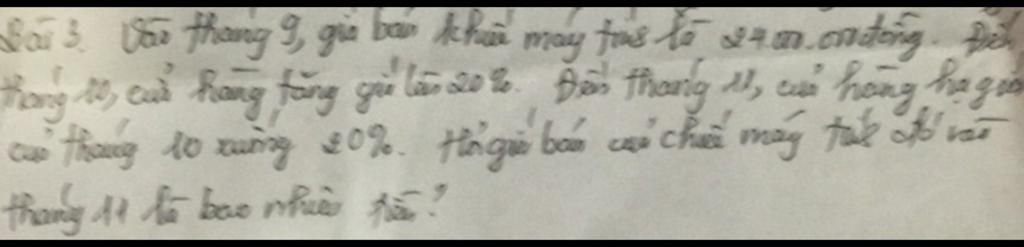 Bài 3. Vào tháng 9, giá bán chiếc máy tính là 24.000.000 đồng. Đến
tháng 10, cửa hàng tăng giá lên 20%. Đến tháng 11, cửa hàng hạ giá
của tháng 10 xuống 20%. Hỏi giá bán của chiếc máy tính đó vào
tháng 11 là bao nhiêu tiền?